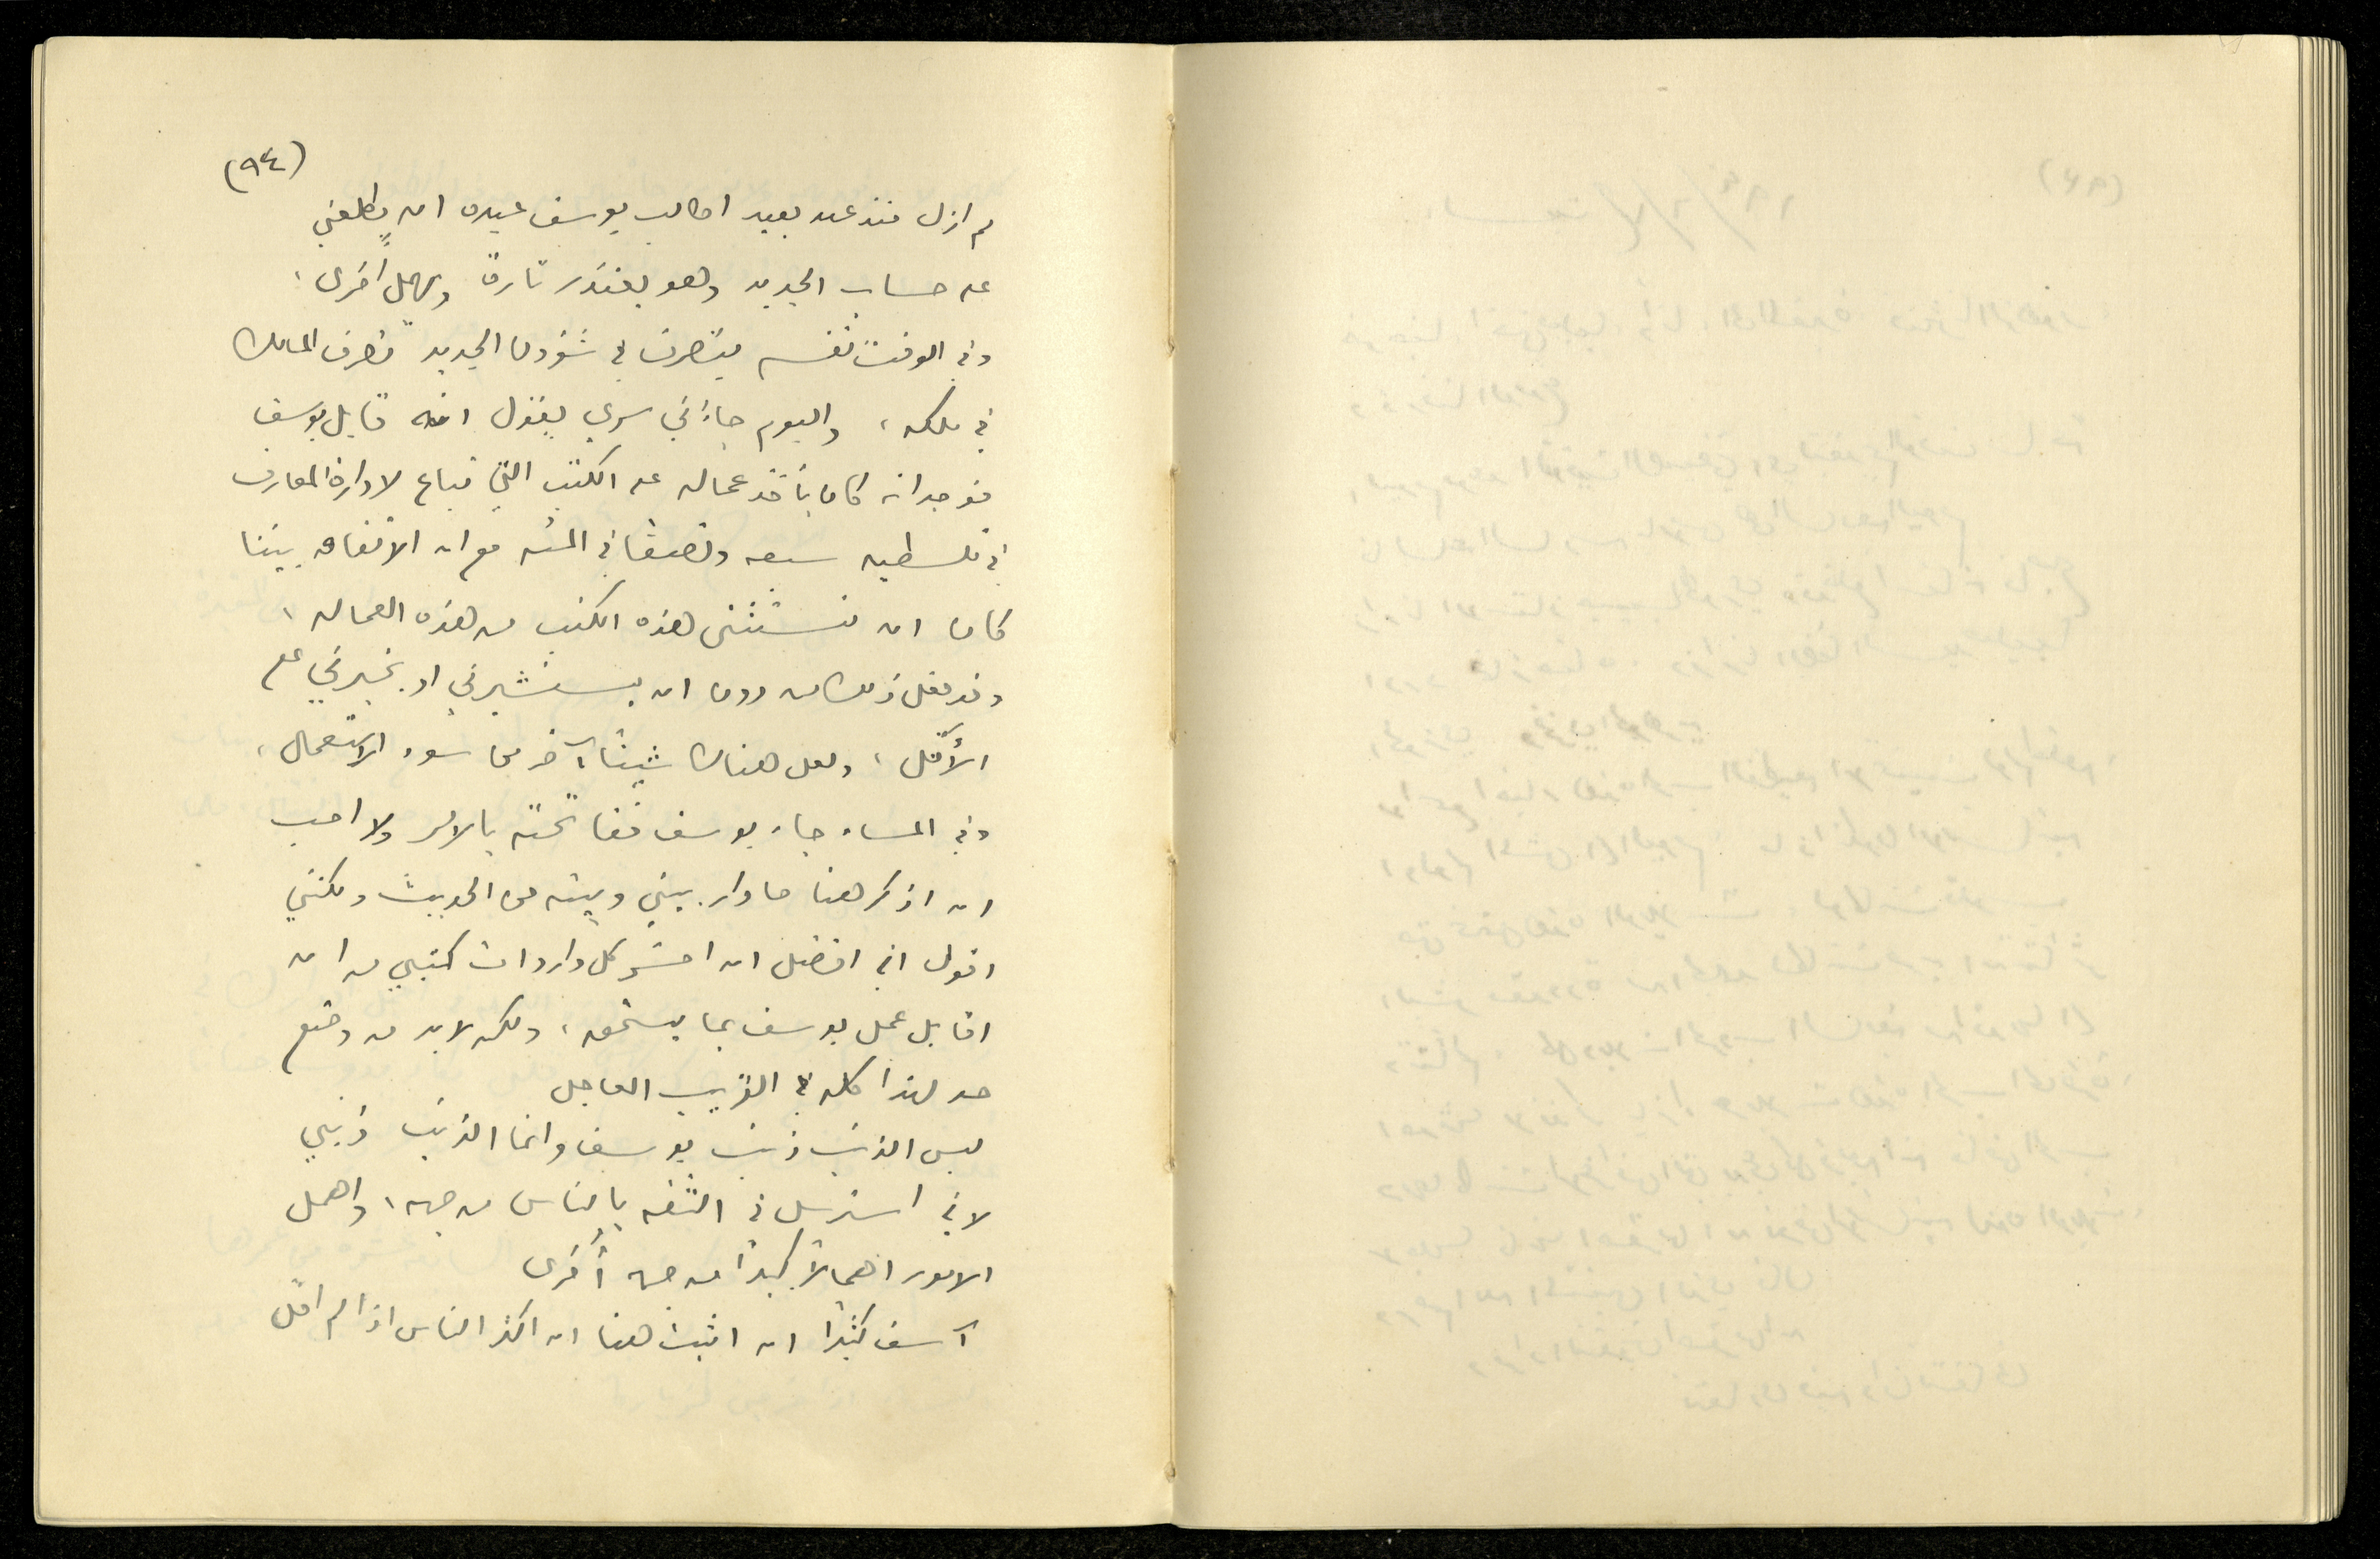 (٩٤)
لم ازل منذ عهد بعيد اطالب يوسف عبده ان يطلعني
على حساب الجديد وهو يعتذر تارة ويهمل أخرى،
وفي الوقت نفسه يتصرف في شؤون الجديد تصرف المالك
في ملكه، واليوم جاءني سري يقول انه قابل يوسف
فوجد انه كان يأخذ عماله عن الكتب التي تباع لادارة المعارف
في فلسطين سبعه ونصفاً في المئه مع ان الاتفاق بيننا
كان ان نستثني هذه الكتب من هذه العماله،
وقد فعل ذلك من دون ان يستشيرني او يخبرني على
الأقل، ولعل هناك شيئاً آخر من سوء الاستعمال،
وفي المساء جاء يوسف ففاتحته بالامر ولا احب
ان اذكر هنا ما دار بيني وبينه من الحديث ولكنني
اقول اني افضل ان اخسر كل واردات كتبي من ان
اقابل عمل يوسف بما يستحقه، ولكن لا بد من وضع
حد لهذا كله في القريب العاجل
ليس الذنب ذنب يوسف وانما الذنب ذنبي
لاني استرسل في الثقه بالناس من جهه، واهمل
الامور اهمالاً كبيراً من جهه أخرى
آسف كثيراً ان اثبت هنا ان اكثر الناس اذا لم اقل